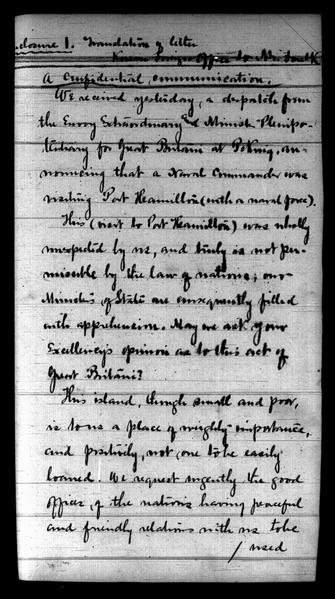 closure 1. Translation of letter
Korean Foreign Office to Mr. Foulk
A confidential communication.
We received yesterday, a despatch from
the Envoy Extraordinary and Minist. Plenipo-
tentiary for Great Britani at Peking, an-
nouncing that a Naval Commander was
visiting Port Hamilton (with a naval force).
This (visit to Port Hamilton) was wholly
unexpected by us, and truly is not per-
missible by the law of nations; our
Ministers of State are consequently filled
with apprehension. May we ask your
Excellency's opinion as to this act of
Great Britani?
This island, though small and poor,
is to us a place of mighty importance,
and positively, not one to be easily
loaned. We request urgently the good
offices of the nations having peaceful
and friendly relations with us to be
/ used